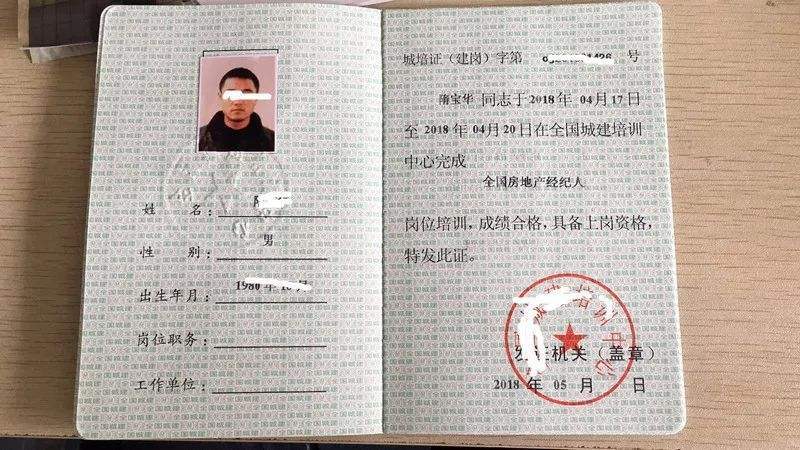 姓 名：
性 别： 男
出生年月： 1980 年 10 月
岗位职务：
工作单位：
城培证（建岗）字第 号
隋宝华 同志于 2018 年 04 月 17 日
至 2018 年 04 月 20 日在全国城建培训
中心完成
全国房地产经纪人
岗位培训，成绩合格，具备上岗资格，
特发此证。
培训中心
发证机关（盖章）
2018 年 05 月 日